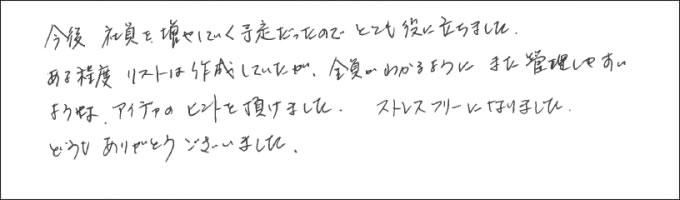 今後 社員を増やしていく予定だったので とても役に立ちました.
ある程度 リストは作成していたが、全員がわかるように また管理しやすい
ような、アイデアのヒントを頂けました. ストレスフリーになりました.
どうも ありがとうございました.